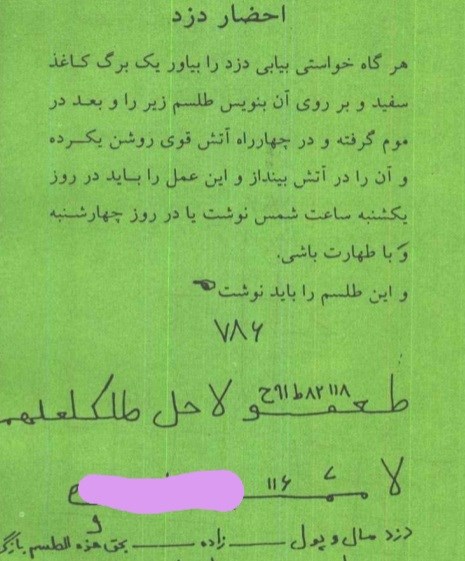 احضار دزد
هر گاه خواستی بیابی دزد را بیاور یک برگ کاغذ
سفید و بر روی آن بنویس طلسم زیر را و بعد در
موم گرفته و در چهارراه آتش قوی روشن یکرده
و آن را در آتش بینداز و این عمل را باید در روز
یکشنبه ساعت شمس نوشت یا در روز چهارشنبه
و با طهارت باشی.
و این طلسم را باید نوشت
۷۸۶
لا حل
لا
دزد مال و پول ـــــ زاده ـــــ بحق هذه الطلسم